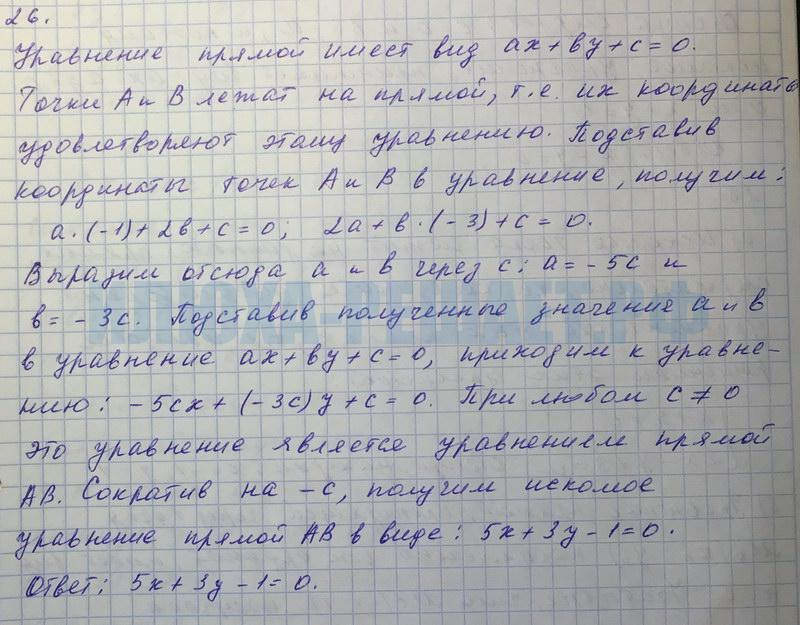 26.
Уравнение прямой имеет вид ax+by+c=0.
Точки A и B лежат на прямой, т.е. их координаты
удовлетворяют этому уравнению. Подставив
координаты точек A и B в уравнение, получим:
a·(-1)+2b+c=0; 2a+b·(-3)+c=0.
Выразим отсюда a и b через c: a=-5c и
b=-3c. Подставив полученные значения a и b
в уравнение ax+by+c=0, приходим к уравне-
нию: -5cx+(-3c)y+c=0. При любом c≠0
это уравнение является уравнением прямой
AB. Сократив на -c, получим искомое
уравнение прямой AB в виде: 5x+3y-1=0.
Ответ: 5x+3y-1=0.